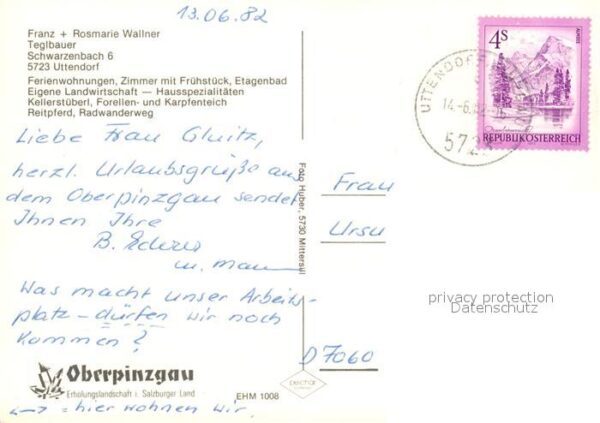 13.06.82
Franz + Rosmarie Wallner
Teglbauer
Schwarzenbach 6
5723 Uttendorf
Ferienwohnungen, Zimmer mit Frühstück, Etagenbad
Eigene Landwirtschaft — Hausspezialitäten
Kellerstüberl, Forellen- und Karpfenteich
Reitpferd, Radwanderweg
Liebe Frau
herzl. Urlaubsgrüße aus
dem Oberpinzgau sendet
Ihnen Ihre
B.
u. Mann
Was macht unser Arbeits-
platz - dürfen wir noch
kommen?
Oberpinzgau
Erholungslandschaft i. Salzburger Land
= hier wohnen wir.
EHM 1008
Foto Huber, 5730 Mittersill
4S
REPUBLIK ÖSTERREICH
UTTENDORF
14.-6.82
572
Frau
Ursu
D 7060
privacy protection
Datenschutz